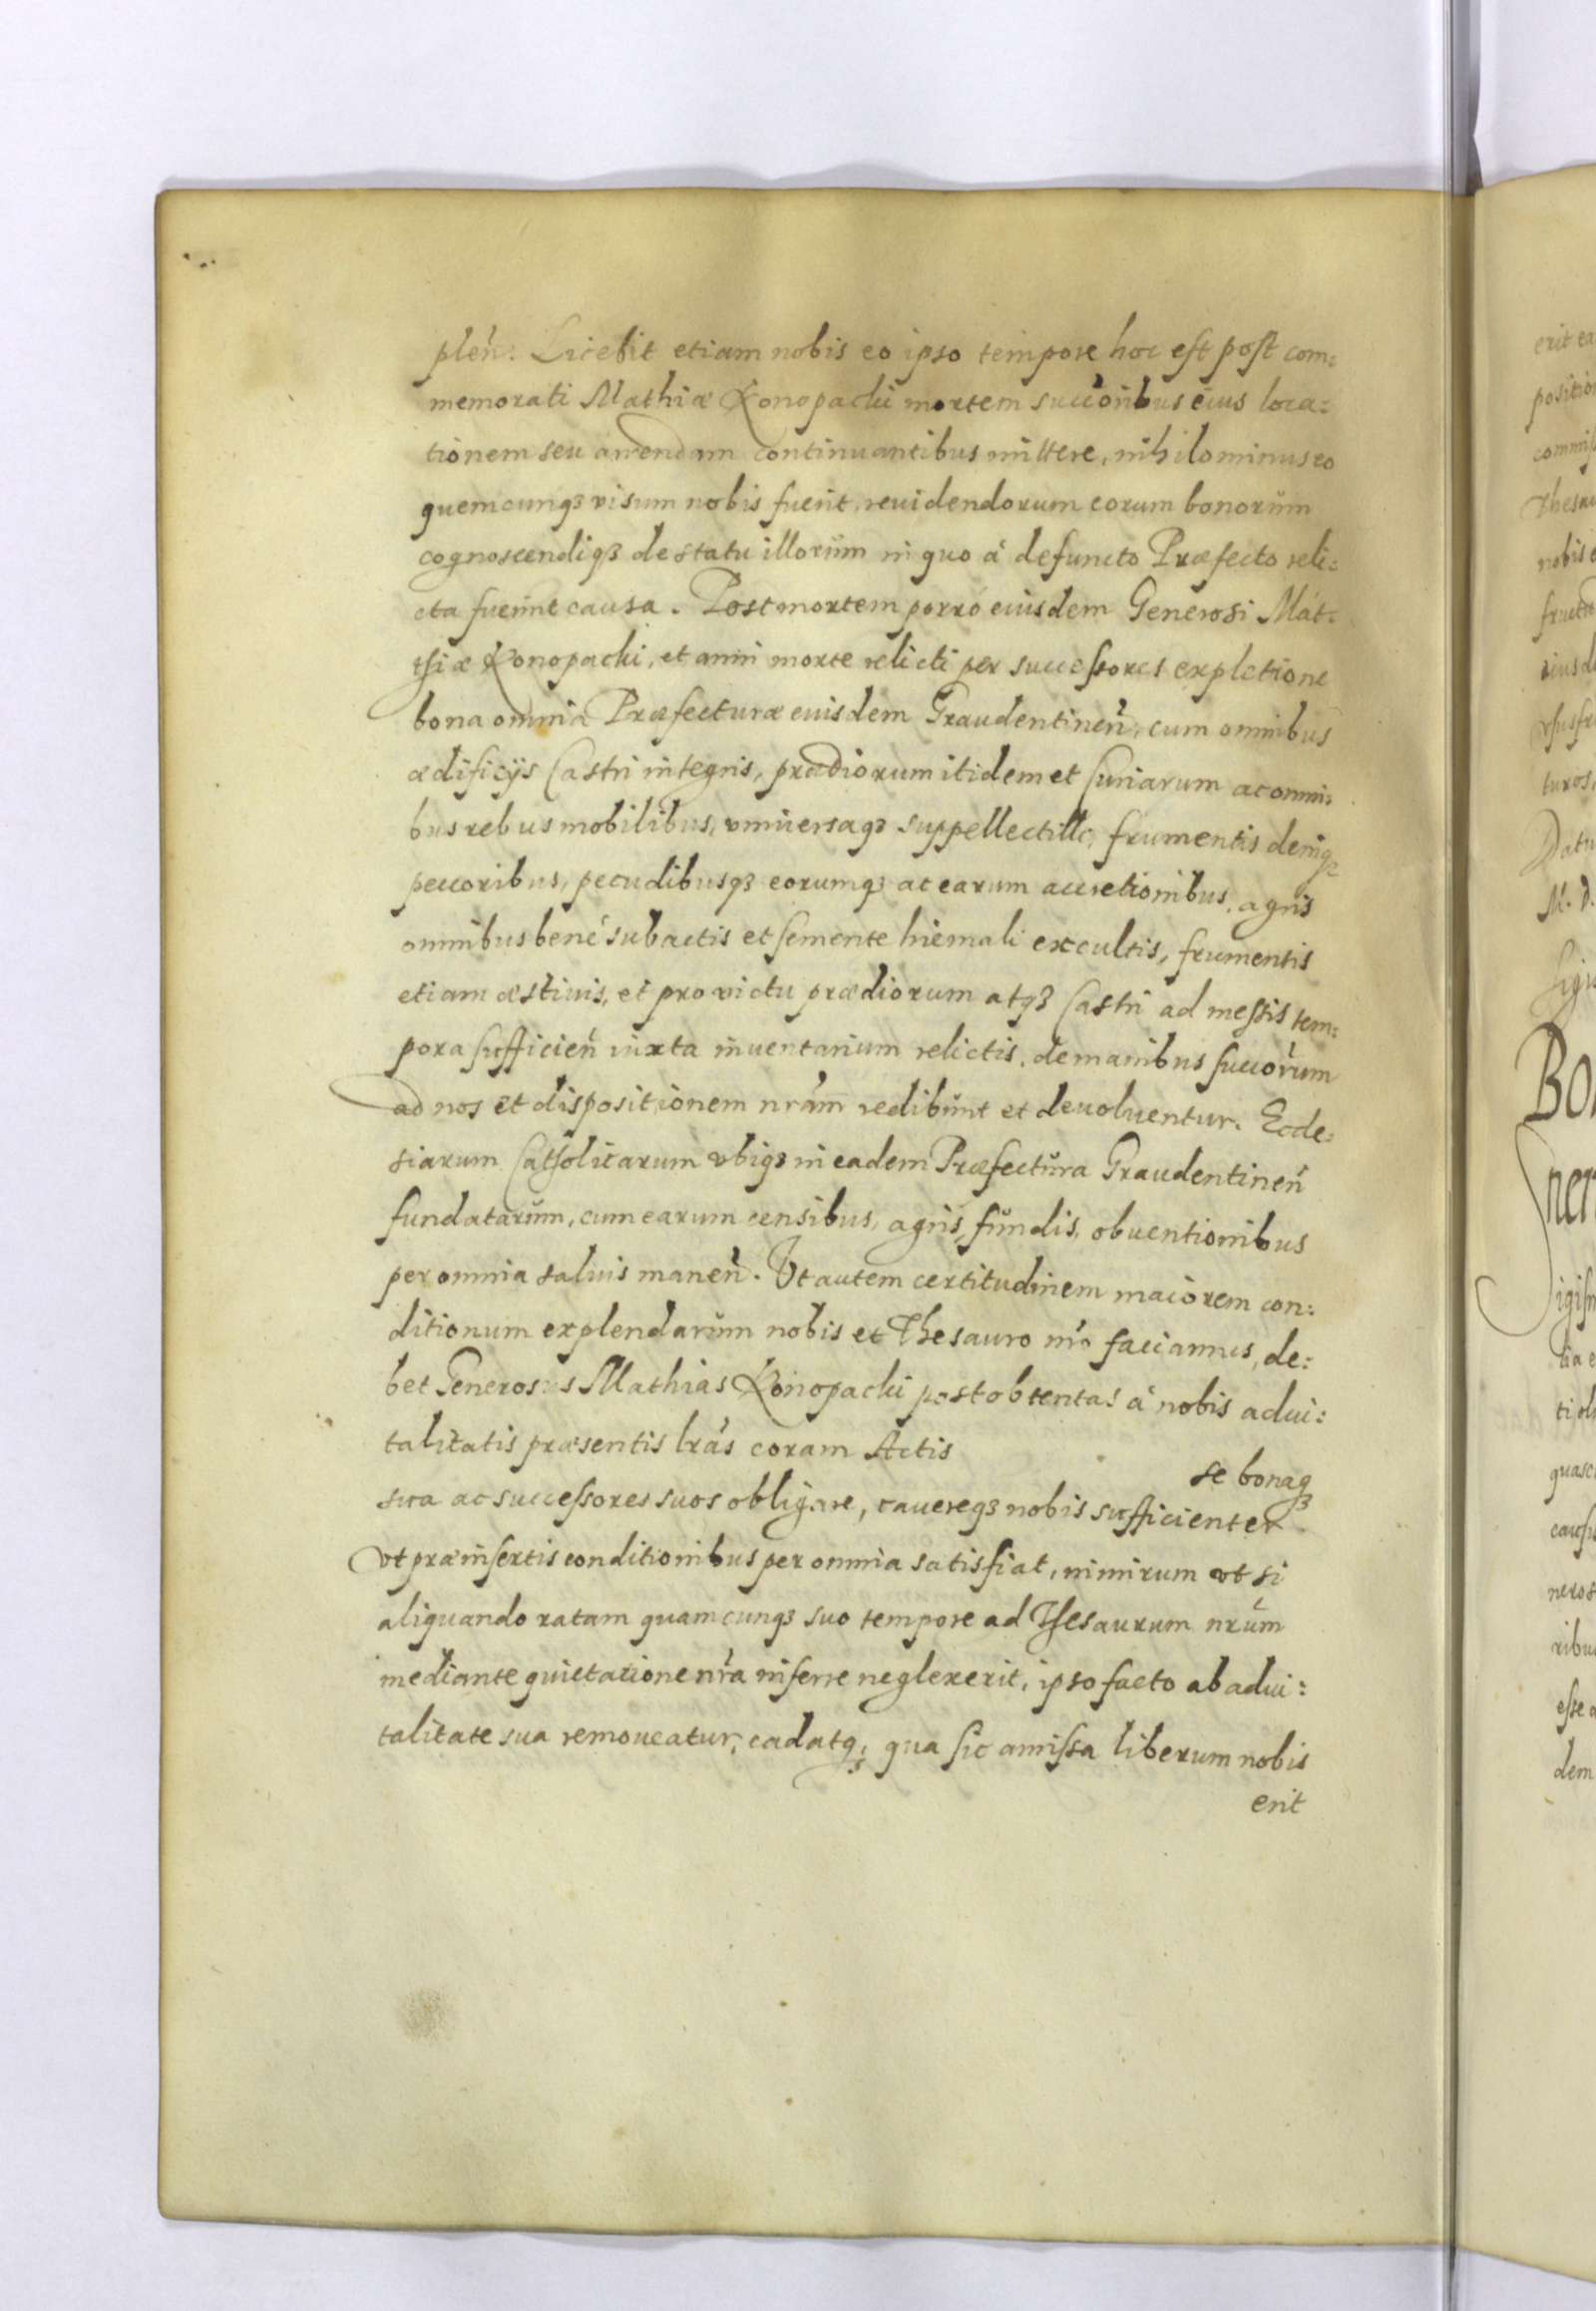 pleń: Licebit etiam nobis eo ipso tempore hoc est post com:
memorati Mathiæ Konopacki mortem succoribus eius loca:
tionem seu arrendam continuantibus mittere, nihilominus eo
quemcunqȝ visum nobis fuerit, reuidendorum eorum bonorum
cognoscendiqȝ de statu illorum in quo à defuncto Præfecto reli:
cta fuerint causa. Post mortem porró eiusdem Generosi Mat:
thiæ Konopacki, et anni morte relicti per successores expletione
bona omnia Præfecturæ eiusdem Graudentineń, cum omnibus
ædificijs Castri integris, prædiorum itidem et Curiarum ac omni:
bus rebus mobilibus, vniuersaqȝ suppellectille, frumentis deniqȝ
peccoribus, pecudibusqȝ eorumqȝ ac earum accretionibus, agris
omnibus bené subactis et semente hiemali excultis, frumentis
etiam æstiuis, et pro victu prædiorum atqȝ Castri ad messis tem:
pora sufficień iuxta inuentarium relictis, de manibus succorum
ad nos et dispositionem nrám redibunt et deuoluentur. Eccle:
siarum Catholicarum vbiqȝ in eadem Præfectura Graudentineń
fundatarum, cum earum censibus, agris, fundis, obuentionibus
per omnia saluis maneń. Vt autem certitudinem maiorem con:
ditionum explendarum nobis et Thesauro nró faciamus, de:
bet Generosus Mathias Konopacki post obtentas à nobis adui:
talitatis præsentis lrás coram Actis
se bonaqȝ
sua ac successores suos obligare, cauereqȝ nobis sufficienter
vt præinsertis conditionibus per omnia satisfiat, nimirum vt si
aliquando ratam quamcunqȝ suo tempore ad Thesaurum nrúm
mediante quietatione nrá inferre neglexerit, ipso facto ab adui:
talitate sua remoueatur, cadatqȝ, qua sic amissa liberum nobis
erit